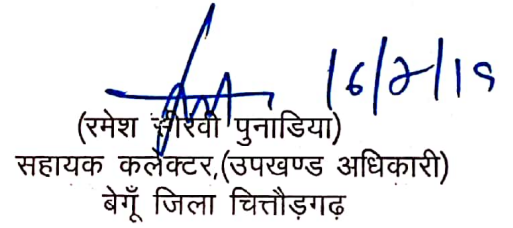 16/2/19
(रमेश सीरवी पुनाडिया)
सहायक कलेक्टर,(उपखण्ड अधिकारी)
बेगूँ जिला चित्तौड़गढ़